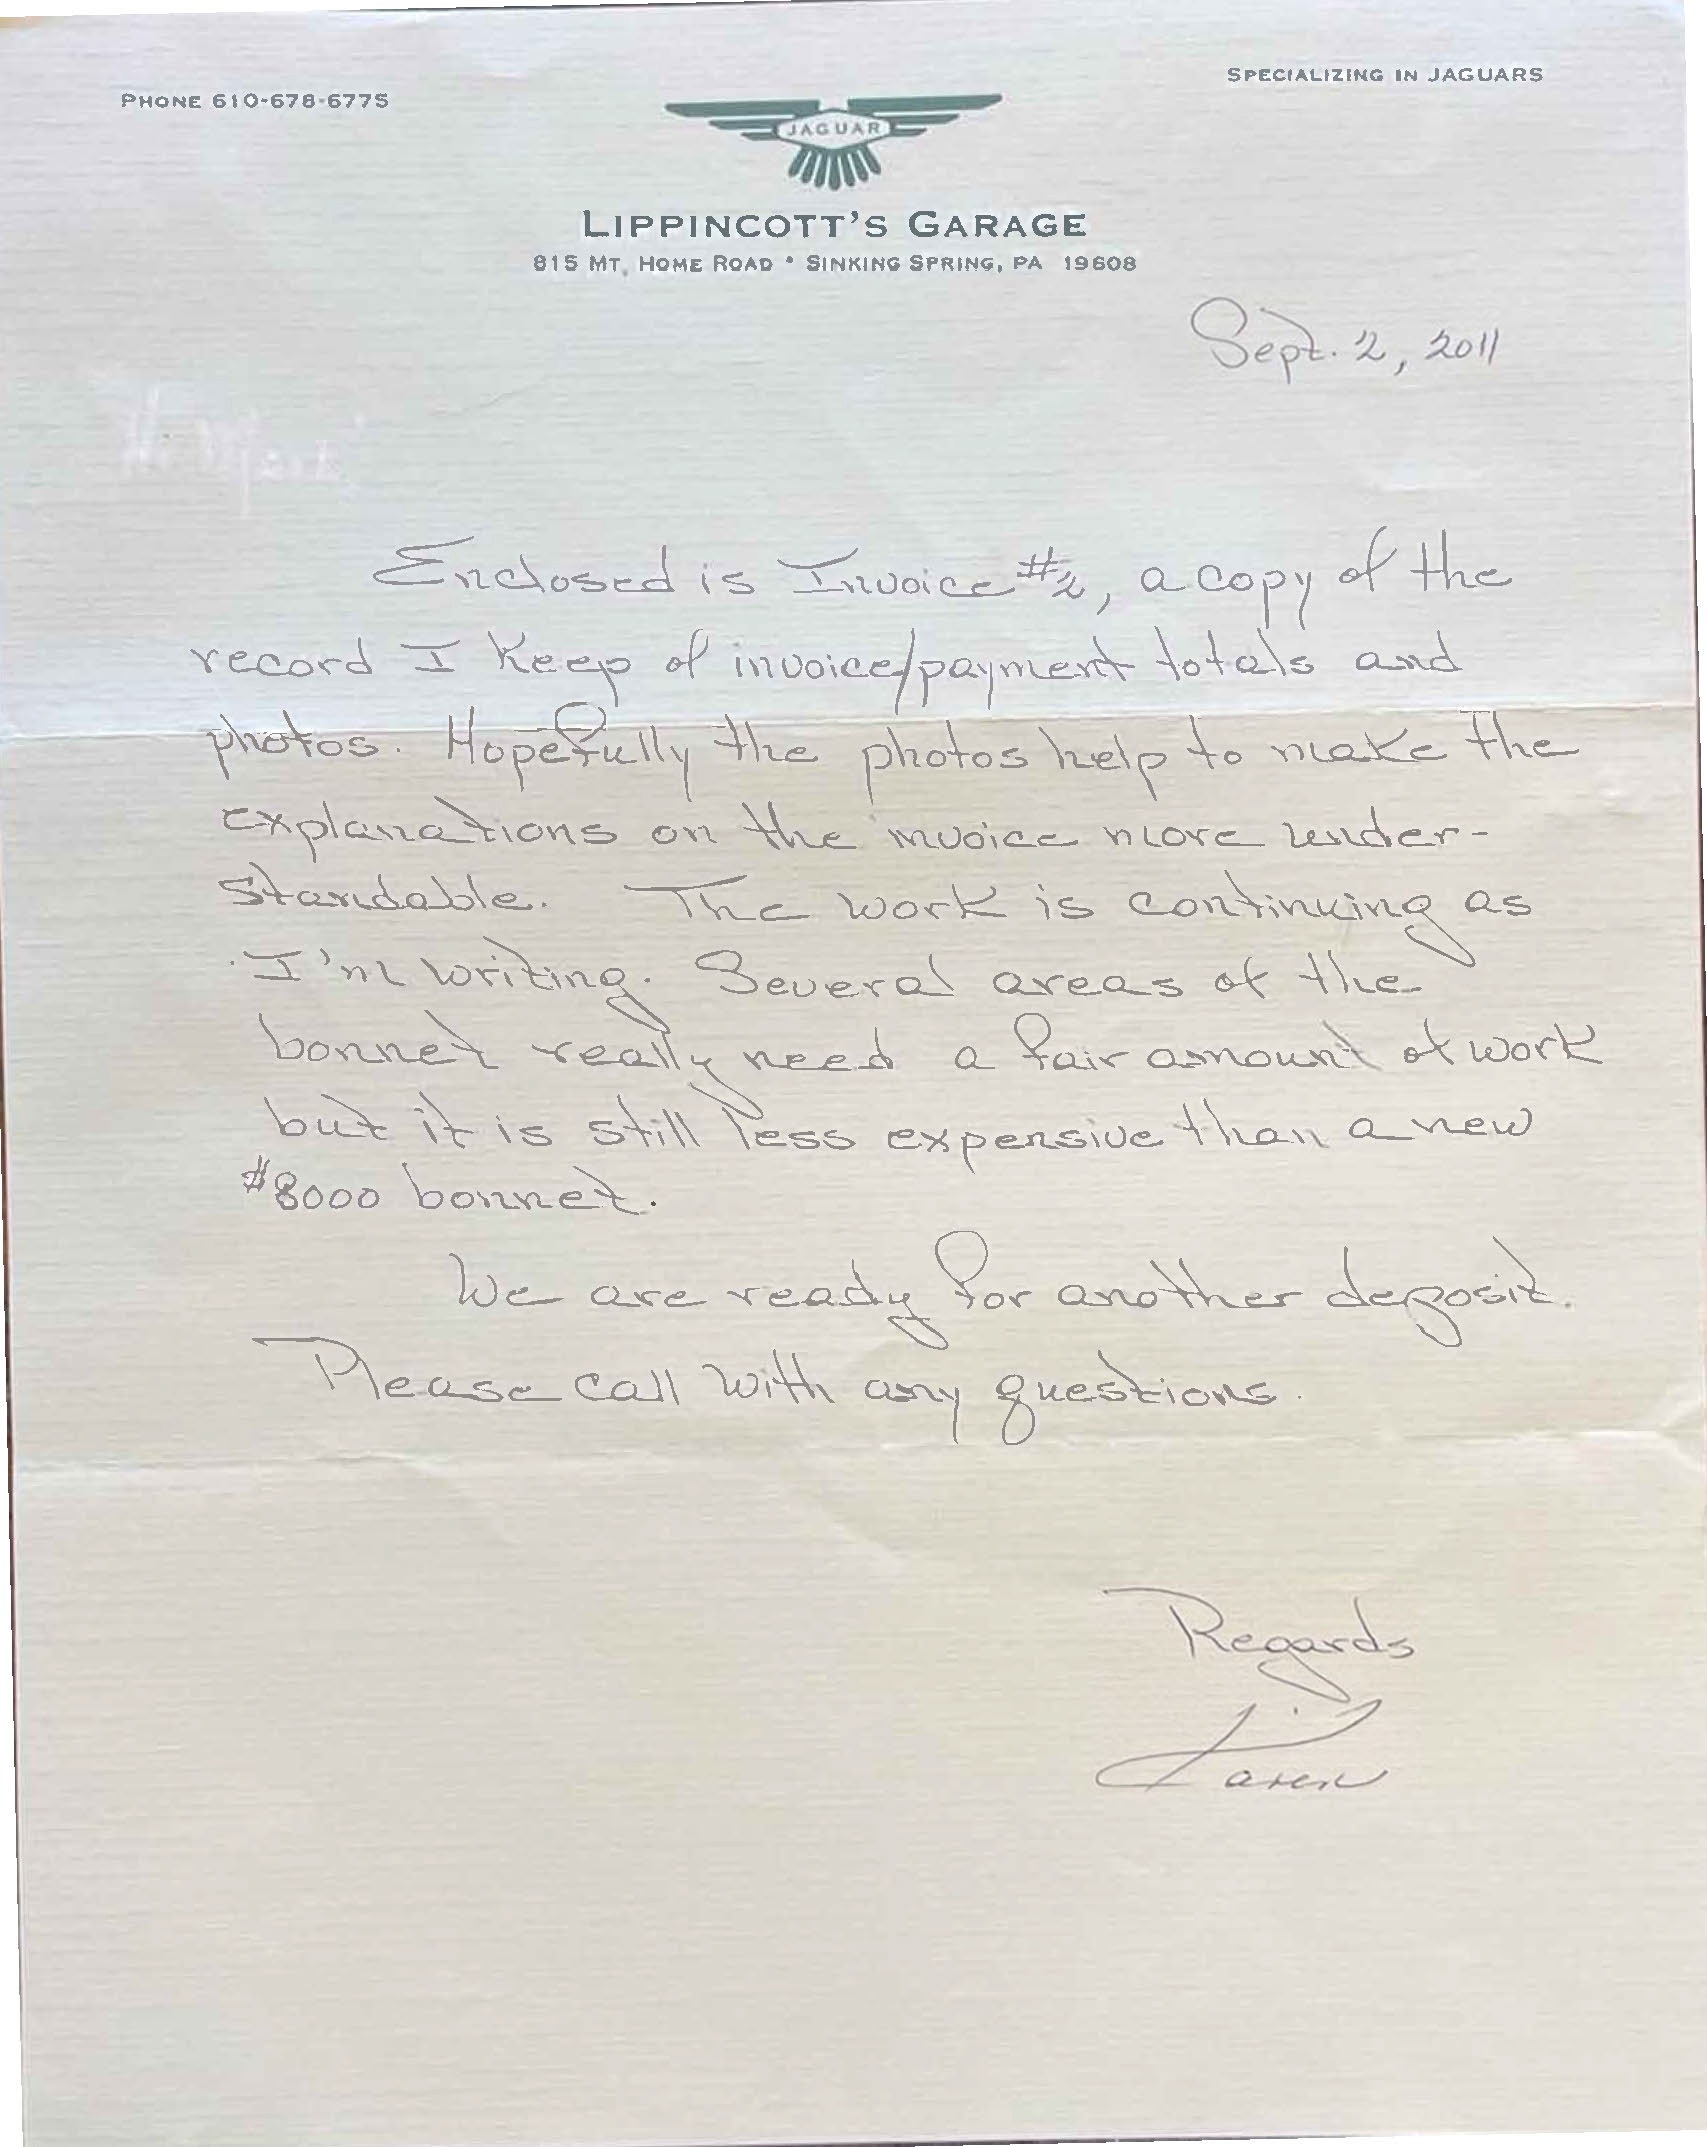 PHONE 610-678-6775
SPECIALIZING IN JAGUARS
JAGUAR
LIPPINCOTT'S GARAGE
815 MT. HOME ROAD • SINKING SPRING, PA 19608
Sept. 2, 2011
Enclosed is Invoice #2, a copy of the
record I keep of invoice/payment totals and
photos. Hopefully the photos help to make the
explanations on the invoice more under-
standable. The work is continuing as
I'm writing. Several areas of the
bonnet really need a fair amount of work
but it is still less expensive than a new
$8000 bonnet.
We are ready for another deposit.
Please call with any questions.
Regards
Karen